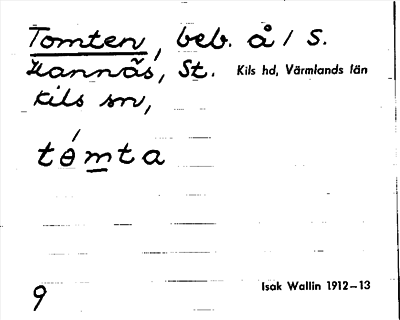 Tomten, beb. å/S.
Hannäs, St. Kils hd, Värmlands län
Kils sn,
tө́mta
9 Isak Wallin 1912–13